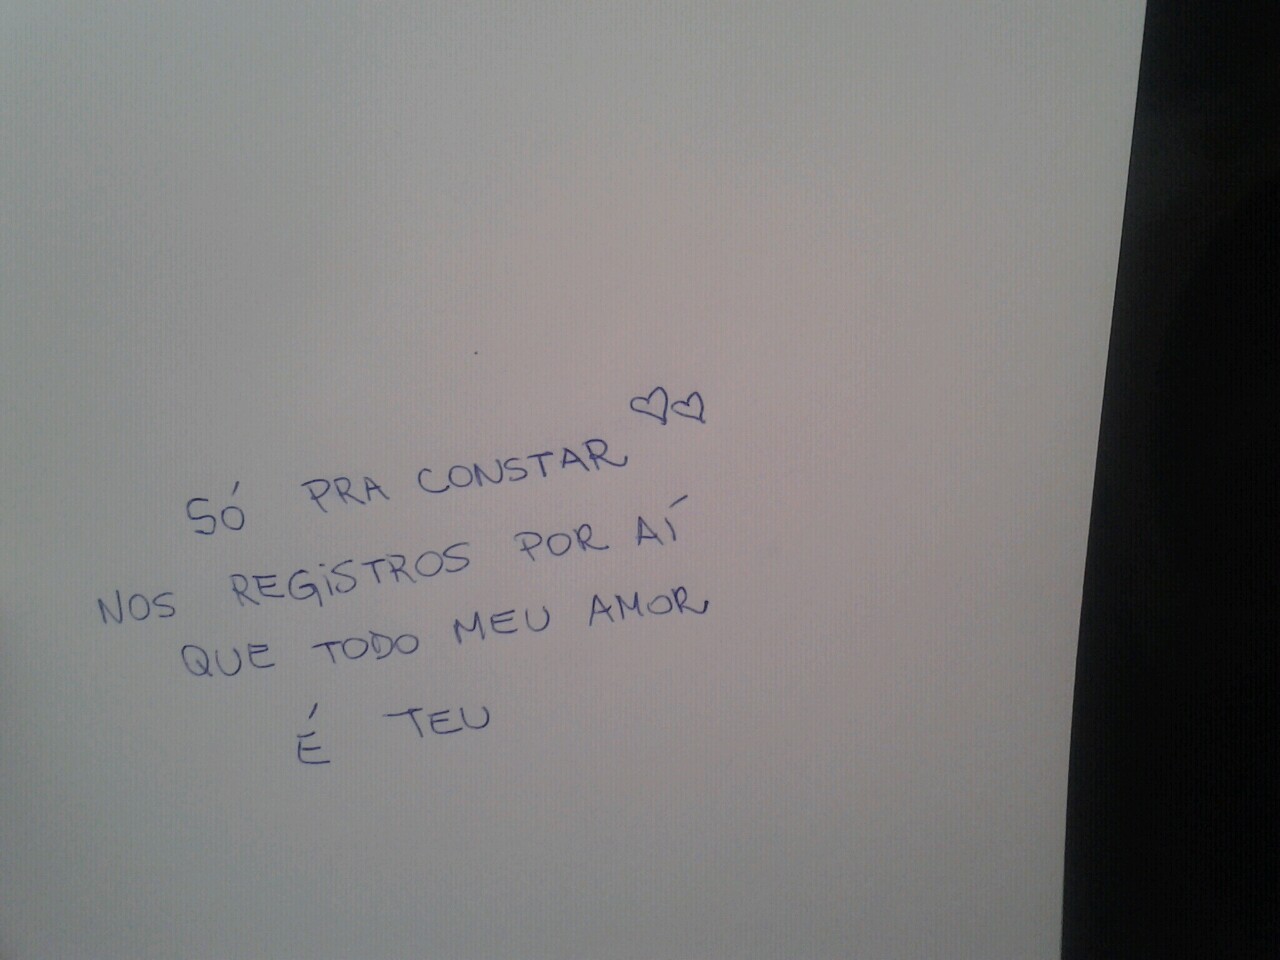 SÓ PRA CONSTAR
NOS REGISTROS POR AÍ
QUE TODO MEU AMOR
É TEU